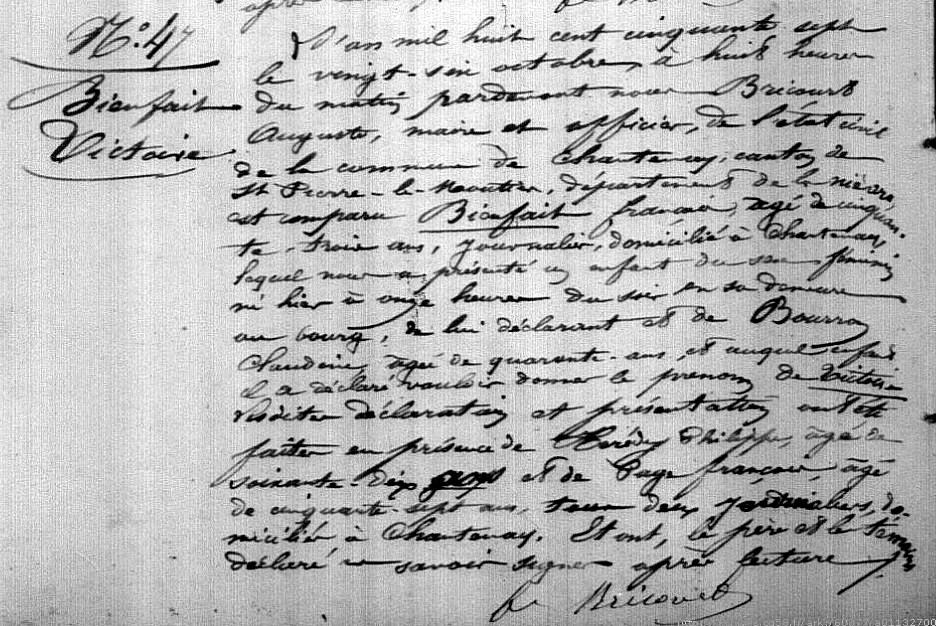 N° 47
Bienfait
Victoire
L'an mil huit cent cinquante sept
le vingt-six octobre, à huit heures
du matin pardevant nous Bricourt
Auguste, maire et officier, de l'état civil
de la commune de Chantenay, canton de
St Pierre-le-Moutier, département de la nièvre,
est comparu Bienfait françois, âgé de cinquan-
te-trois ans, journalier, domicilié à Chantenay,
lequel nous a présenté un enfant du sexe féminin
né hier à onze heures du soir en sa demeure
au bourg, de lui déclarant et de Bourron
Claudine, âgée de quarante-ans, et auquel enfant
il a déclaré vouloir donner le prénom de Victoire
Lesdites déclaration et présentation ont été
faites en présence de Philippe, âgé de
soixante-dix ans et de Page françois, âgé
de cinquante-sept ans, tous deux journaliers, do-
miciliés à Chantenay. Et ont, le père et les témoins
déclaré ne savoir signer après lecture
Bricourt